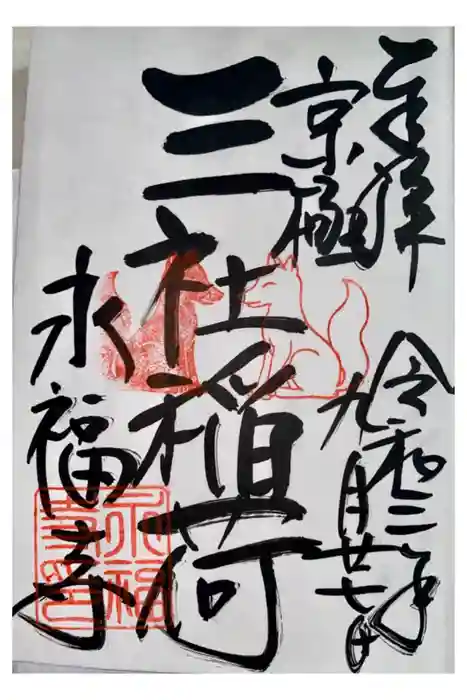 奉拝
京極
令和二年
九月廿七日
三社稲荷
永福寺
永福
寺印